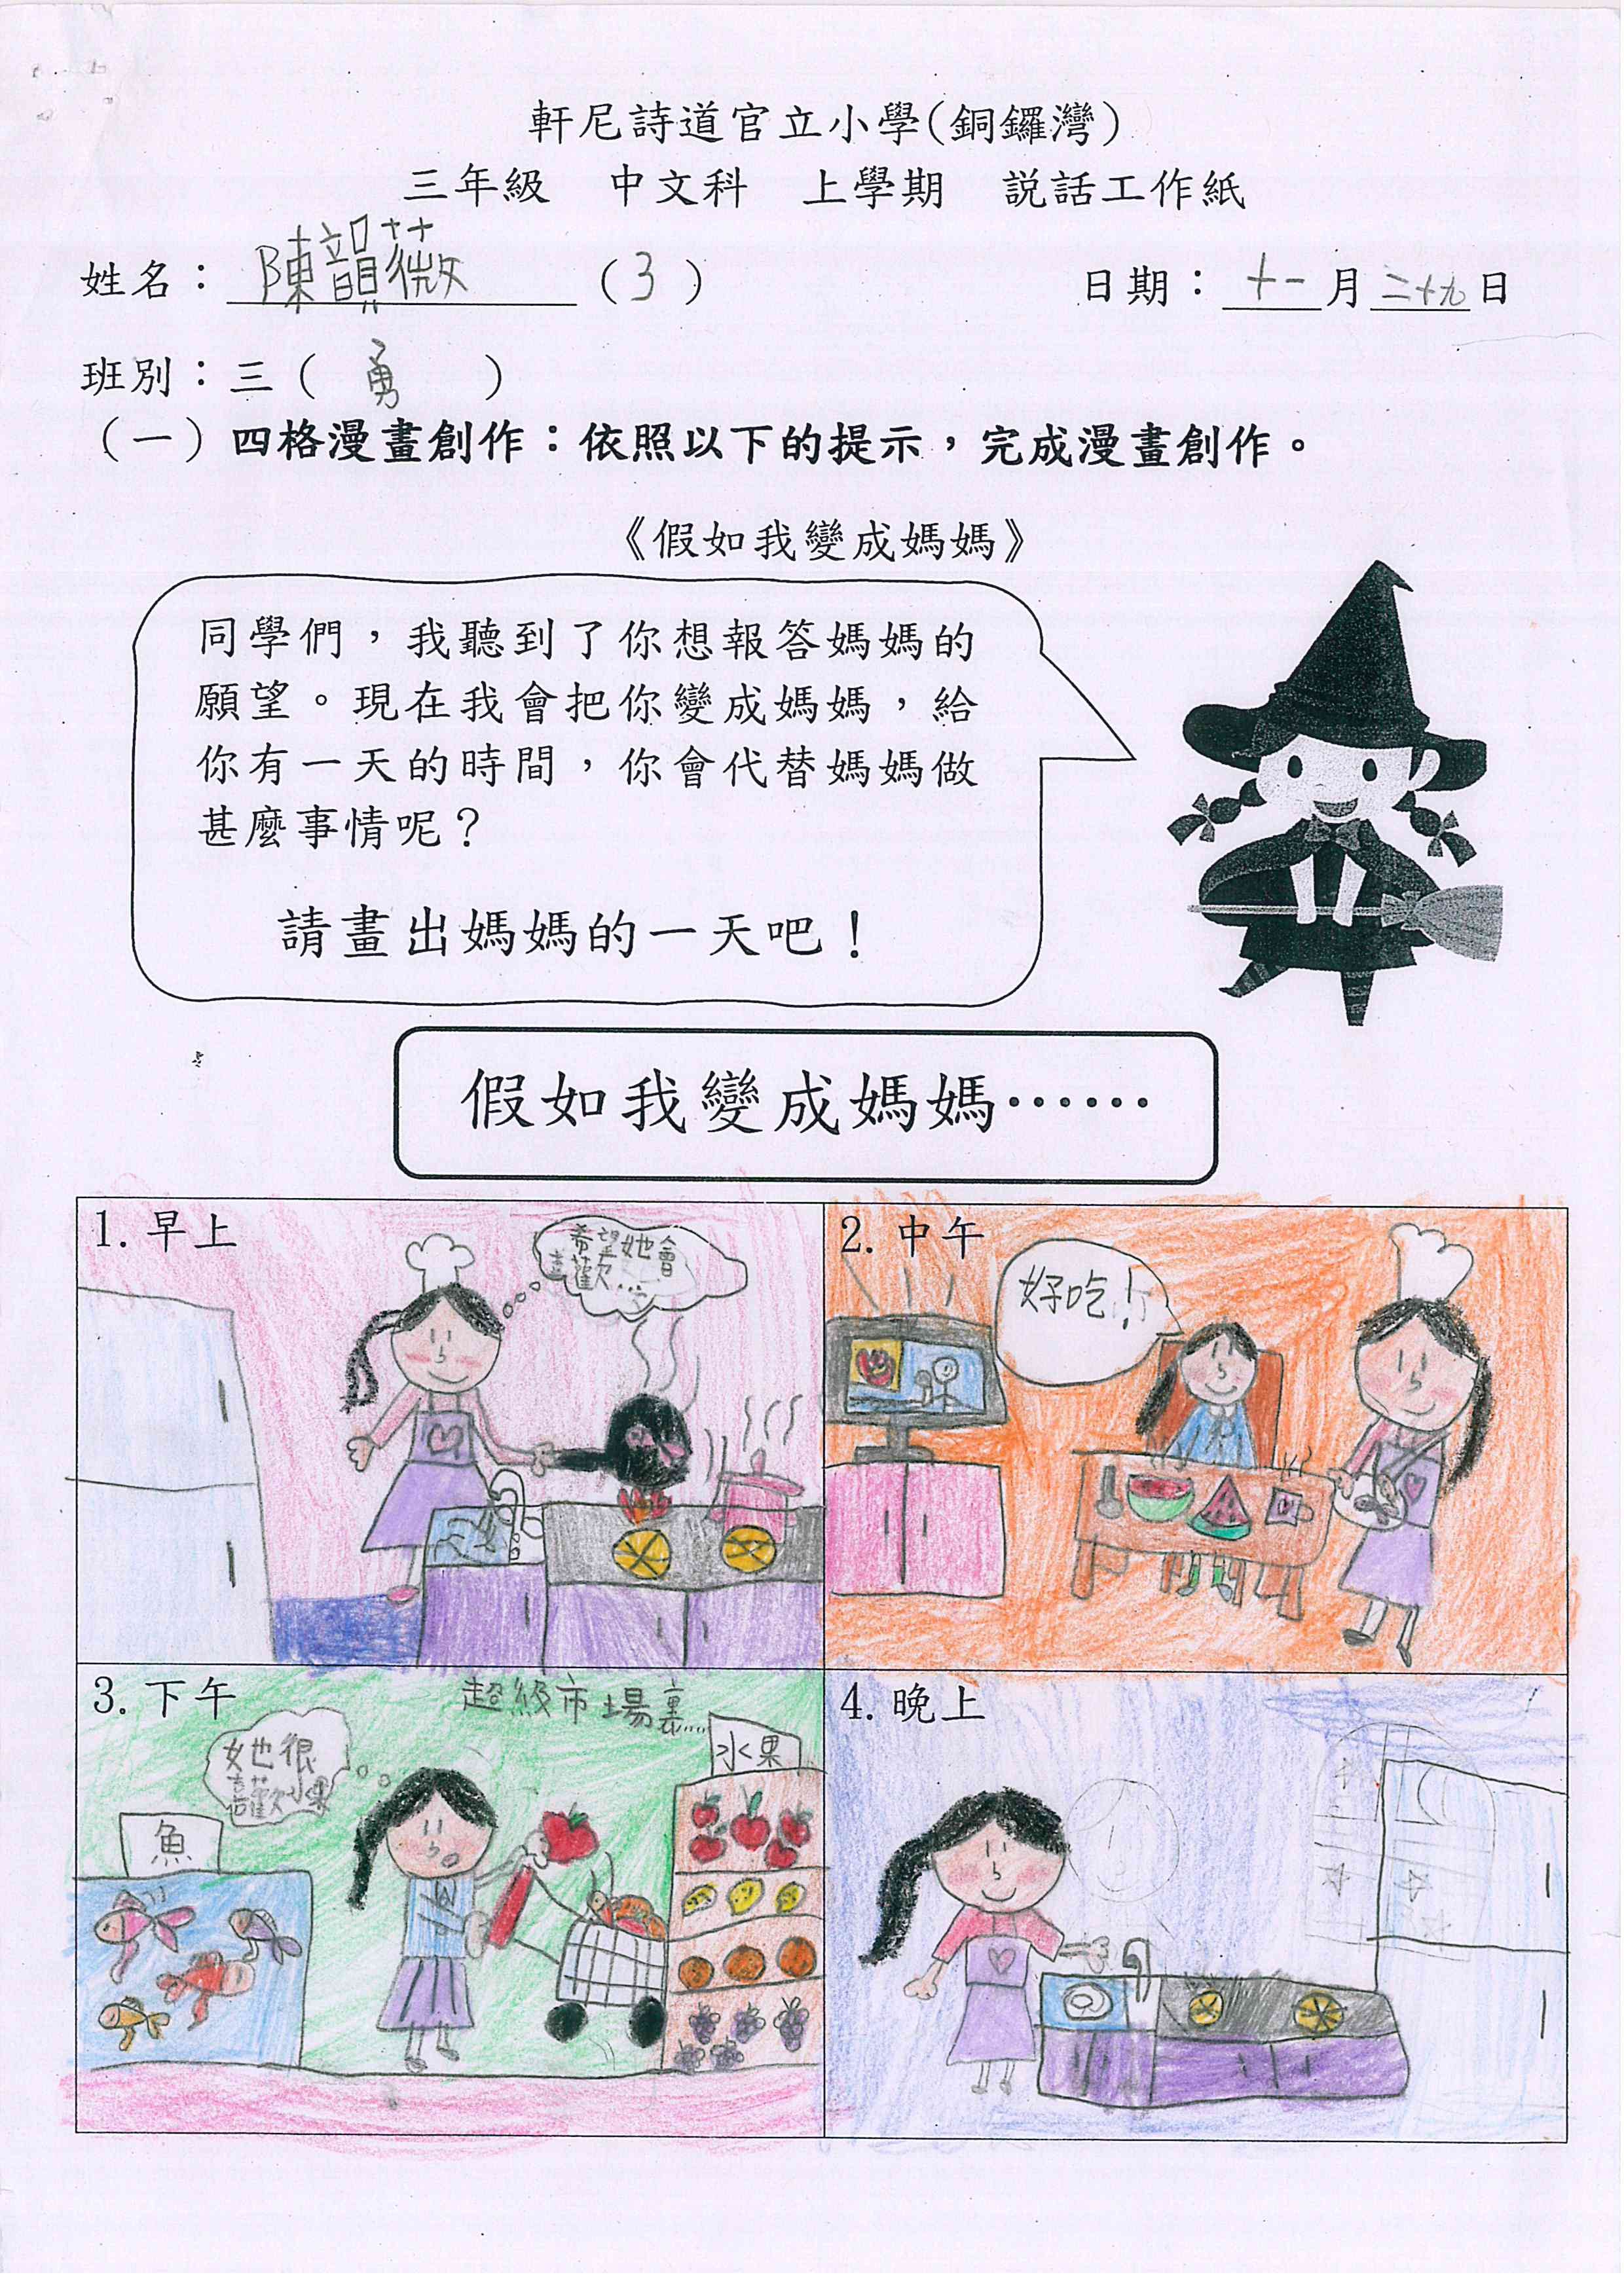 軒尼詩道官立小學(銅鑼灣)
三年級 中文科 上學期 説話工作紙
姓名：陳韻薇（3） 日期：十一月二十九日
班別：三（勇）
（一）四格漫畫創作：依照以下的提示，完成漫畫創作。
《假如我變成媽媽》
同學們，我聽到了你想報答媽媽的
願望。現在我會把你變成媽媽，給
你有一天的時間，你會代替媽媽做
甚麼事情呢？
請畫出媽媽的一天吧！
假如我變成媽媽……
1. 早上
希望她會
喜歡...
2. 中午
好吃！
3. 下午
超級市場裏……
她很
喜歡水果
水果
魚
4. 晚上